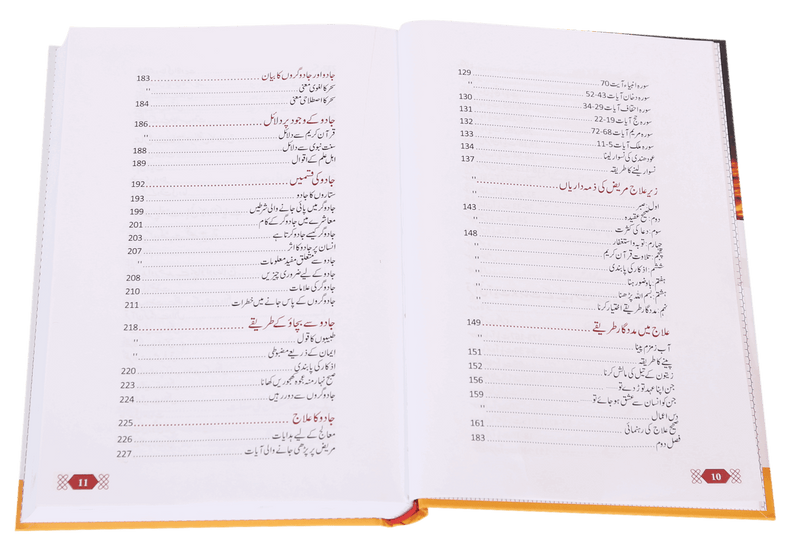 سورہ انبیاء، آیت 70 129
سورہ دخان آیات 43-52 ״
سورہ احقاف آیات 29-34 130
سورہ حج آیات 19-22 131
سورہ مریم آیات 68-72 132
سورہ ملک آیات 5-11 133
عود ھندی کی نسوار لینا 134
نسوار لینے کا طریقہ 137
زیر علاج مریض کی ذمہ داریاں ״
اول: صبر ״
دوم: صحیح عقیدہ 143
سوم: دعا کی کثرت ״
چہارم: توبہ و استغفار 148
پنجم: تلاوت قرآن کریم ״
ششم: اذکار کی پابندی ״
ہفتم: باوضور ہنا ״
ہشتم: بسم اللہ پڑھنا ״
نہم: مددگار طریقے اختیار کرنا ״
علاج میں مددگار طریقے 149
آب زمزم پینا ״
پینے کا طریقہ 151
زیتون کے تیل کی مالش کرنا 152
جن اپنا عہد توڑ دے تو 156
جن کو انسان سے عشق ہو جائے تو 159
دس اعمال ״
صحیح علاج کی رہنمائی 161
فصل دوم 183
10
جادو اور جادوگروں کا بیان 183
سحر کا لغوی معنی ״
سحر کا اصطلاحی معنی 184
جادو کے وجود پر دلائل 186
قرآن کریم سے دلائل ״
سنت نبوی سے دلائل 188
اہل علم کے اقوال 189
جادو کی قسمیں 192
ستاروں کا جادو 193
جادوگر میں پائی جانے والی شرطیں 199
معاشرے میں جادوگر کے کام 201
جادوگر کیسے جادو کرتا ہے 203
انسان پر جادو کا اثر 207
جادو سے متعلق مفید معلومات ״
جادو کے لیے ضروری چیزیں 208
جادوگر کی علامات 210
جادوگروں کے پاس جانے میں خطرات 211
جادو سے بچاؤ کے طریقے 218
طبیبوں کا قول ״
ایمان کے ذریعے مضبوطی ״
اذکار کی پابندی 220
صبح نہار منہ عجوہ کھجوریں کھانا 223
جادوگروں سے دور رہیں 224
جادو کا علاج 225
معالج کے لیے ہدایات 226
مریض پر پڑھی جانے والی آیات 227
11